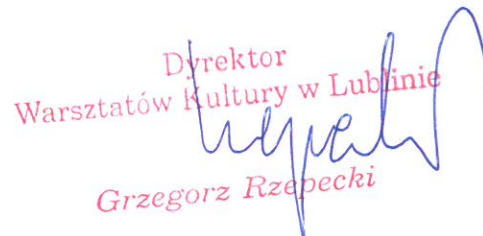 Dyrektor
Warsztatów Kultury w Lublinie
Grzegorz Rzepecki